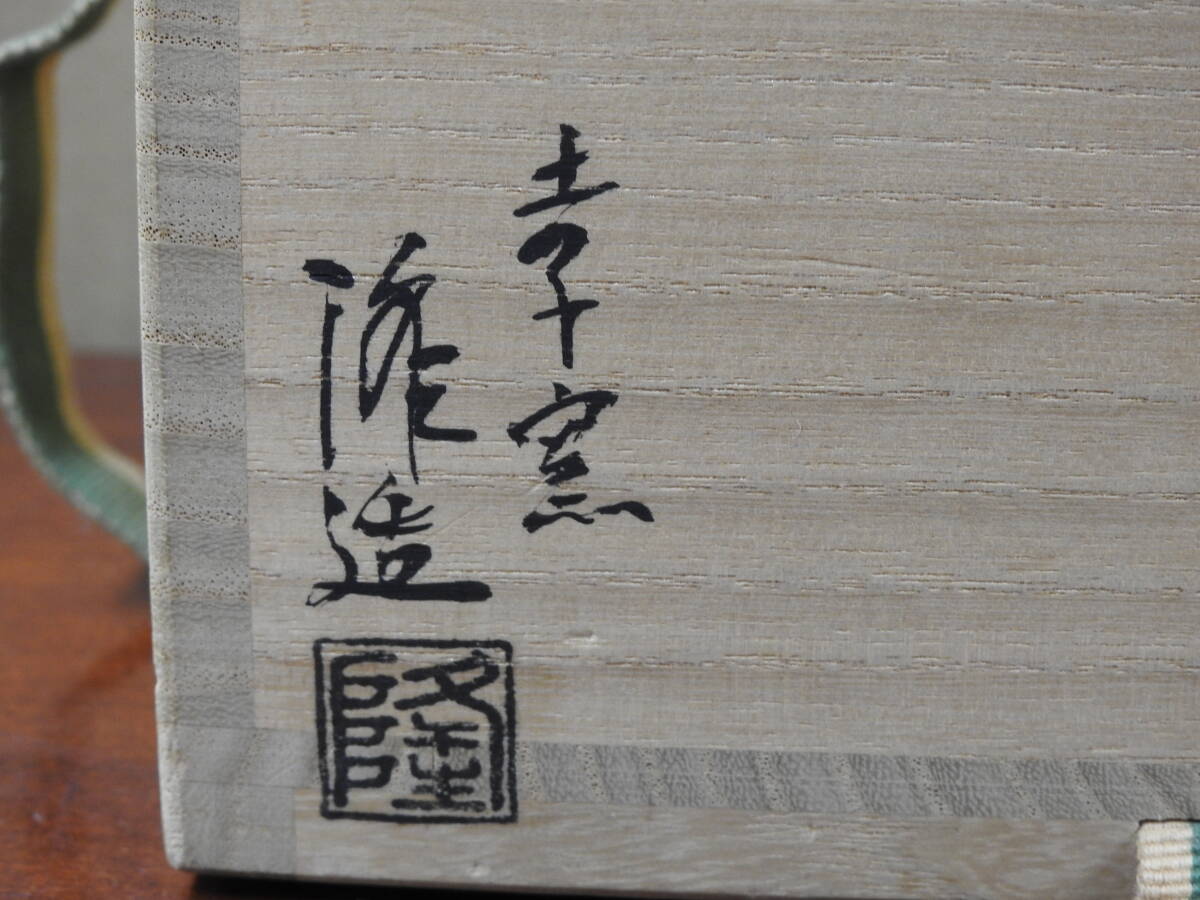 幸窯
隆造
隆